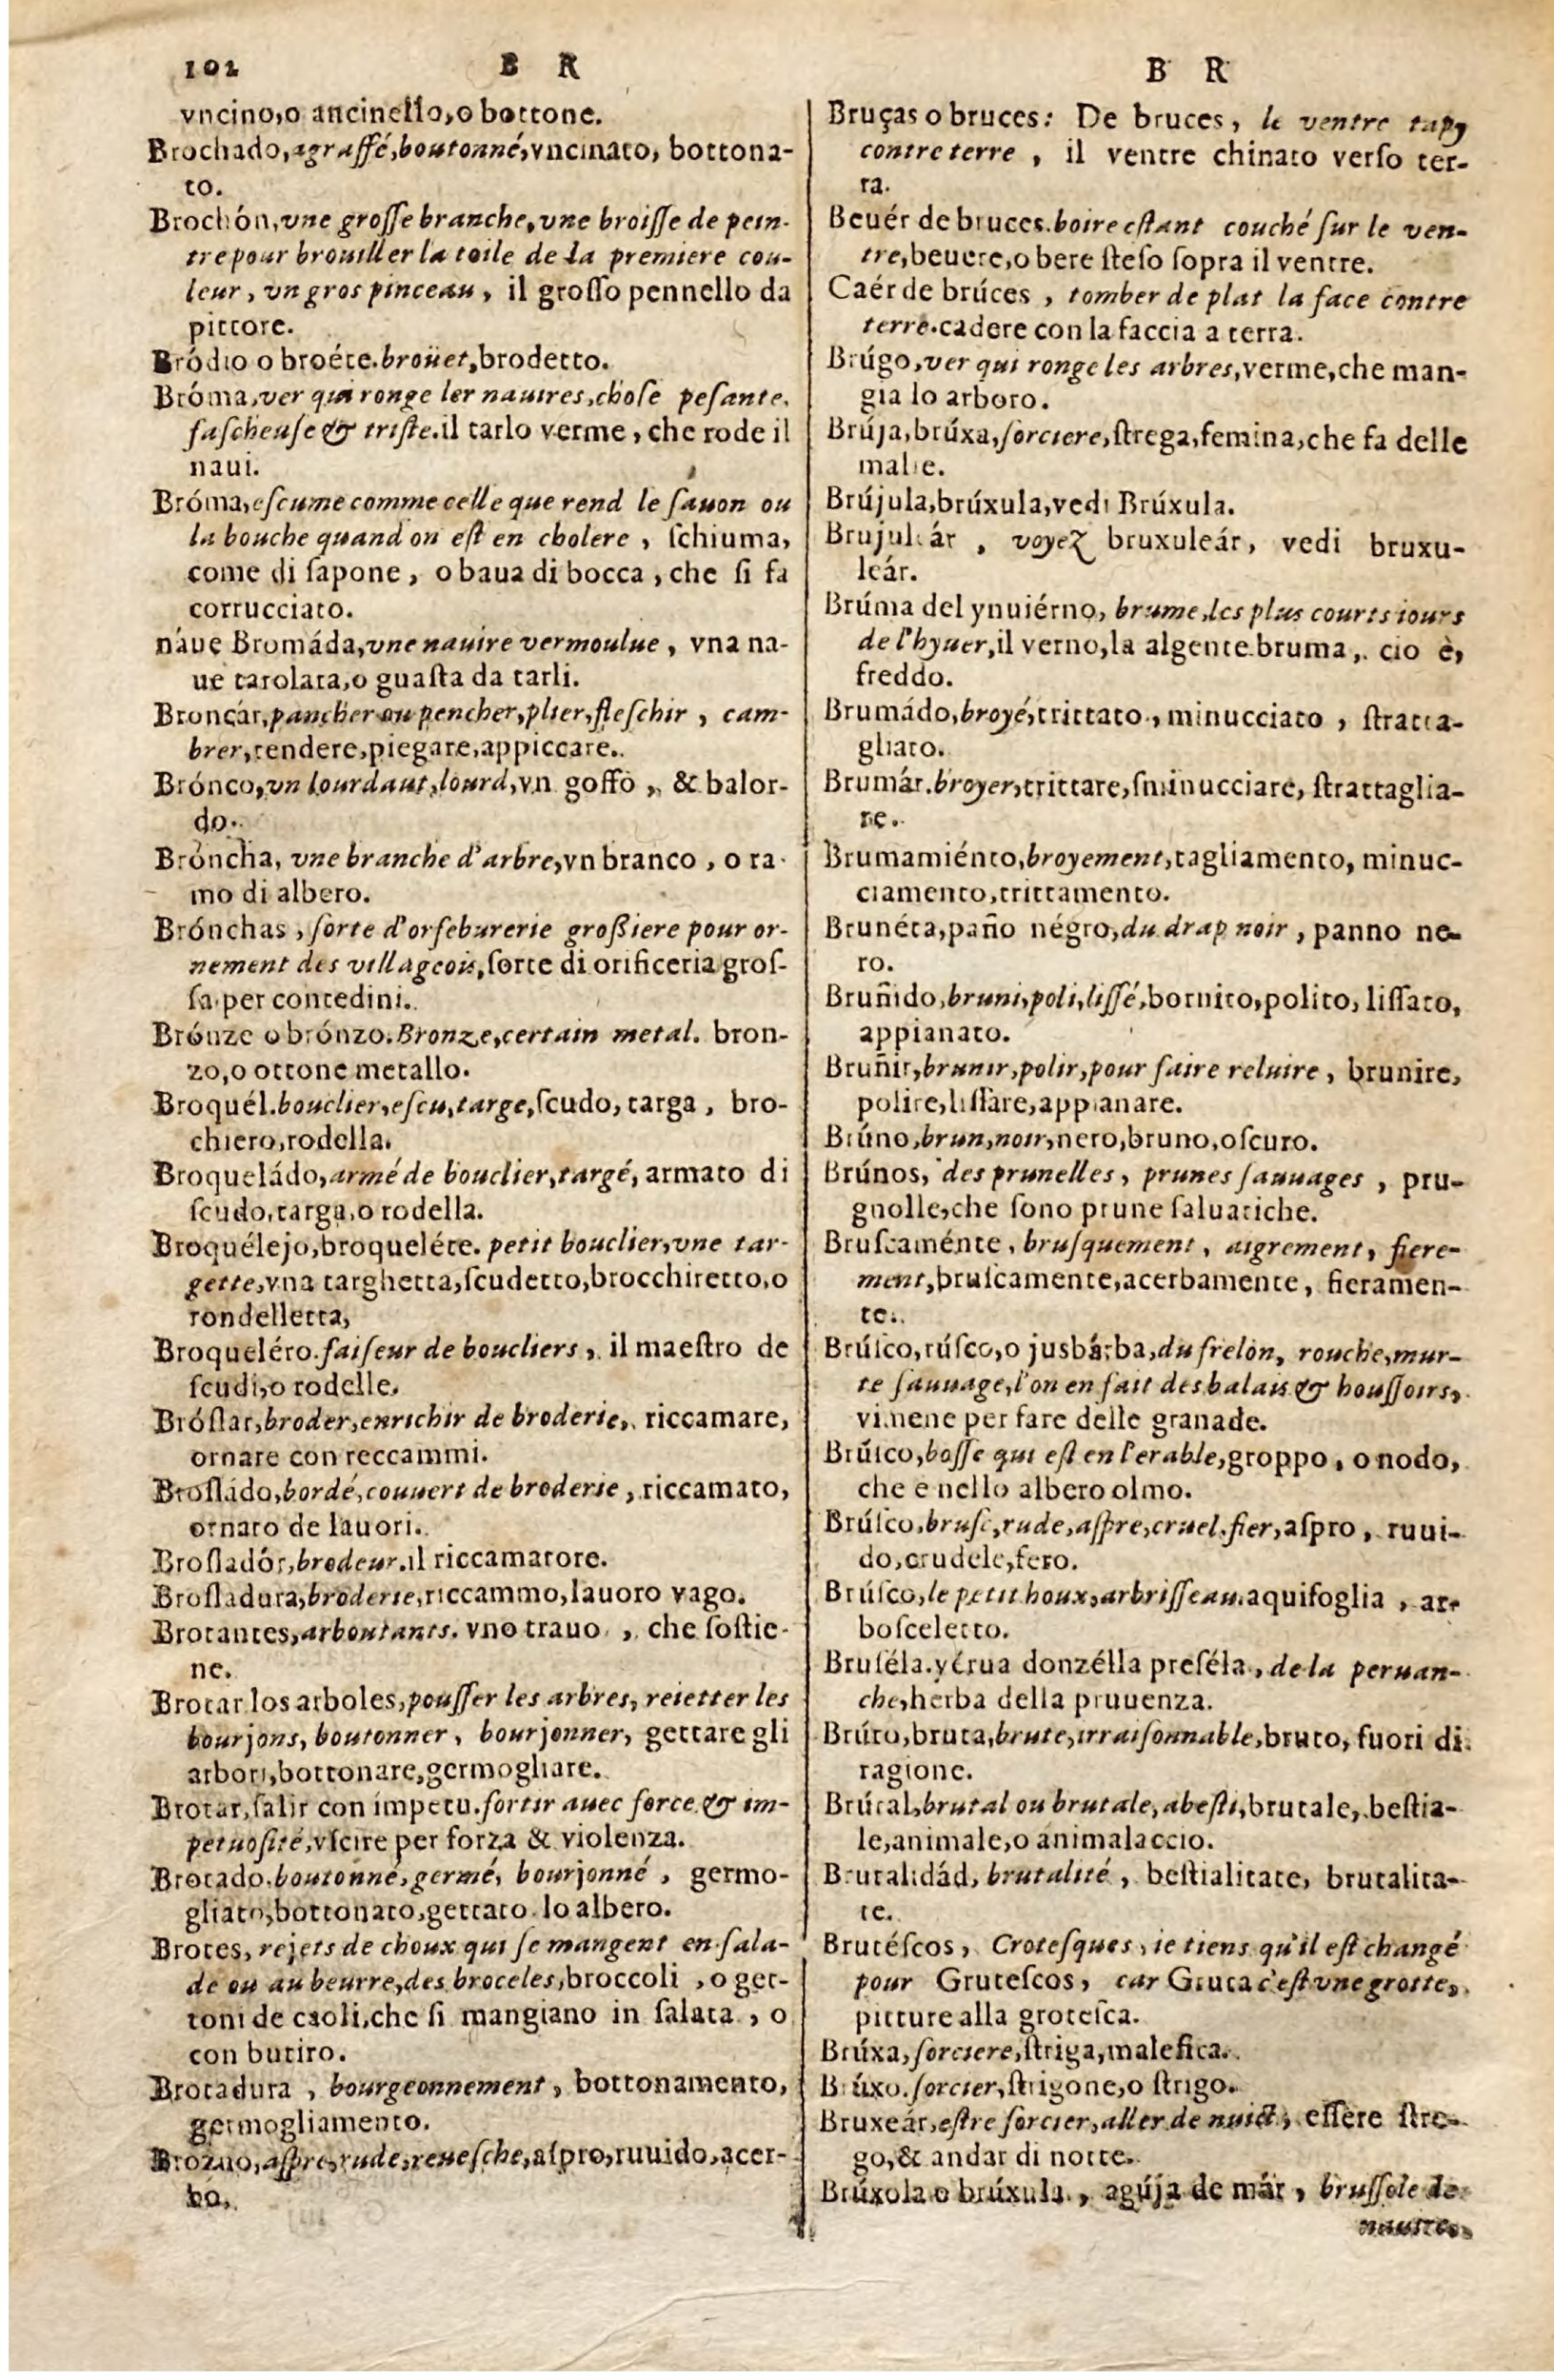 102 B R
vncino,o ancinello,o bottone.
Brochado,agraffé,boutonné,vncinato, bottona-
to.
Brochón,vne grosse branche,vne broisse de pein-
tre pour brouiller la toile de la premiere cou-
leur, vn gros pinceau, il grosso pennello da
pittore.
Bródio o broéte.broüet,brodetto.
Bróma,ver qui ronge ler nauires,chose pesante,
fascheuse & triste.il tarlo verme, che rode il
naui.
Bróma,escume comme celle que rend le sauon ou
la bouche quand on est en cholere, schiuma,
come di sapone, o baua di bocca, che si fa
corrucciato.
náue Bromáda,vne nauire vermoulue, vna na-
ue tarolata,o guasta da tarli.
Broncár,pancher ou pencher,plier,fleschir, cam-
brer,tendere,piegare,appiccare.
Brónco,vn lourdaut,lourd,vn goffo, & balor-
do.
Bróncha, vne branche d'arbre,vn branco, o ra-
mo di albero.
Brónchas, sorte d'orfeburerie grossiere pour or-
nement des villageois,sorte di orificeria gros-
sa per contedini.
Brónze o brónzo.Bronze,certain metal. bron-
zo,o ottone metallo.
Broquél.bouclier,escu,targe,scudo, targa, bro-
chiero,rodella.
Broqueládo,armé de bouclier,targé, armato di
scudo,targa,o rodella.
Broquélejo,broqueléte. petit bouclier,vne tar-
gette,vna targhetta,scudetto,brocchiretto,o
rondelletta,
Broqueléro.faiseur de boucliers, il maestro de
scudi,o rodelle.
Bróslar,broder,enrichir de broderie, riccamare,
ornare con reccammi.
Brosládo,bordé,couuert de broderie, riccamato,
ornato de lauori.
Brosladór,brodeur.il riccamatore.
Brosladura,broderie,riccammo,lauoro vago.
Brotantes,arboutants. vno trauo, che sostie-
ne.
Brotar los arboles,pousser les arbres, reietter les
bourjons, boutonner, bourjonner, gettare gli
arbori,bottonare,germogliare.
Brotar,salir con impetu.sortir auec force & im-
petuosité,vscire per forza & violenza.
Brotado.boutonné,germé, bourjonné, germo-
gliato,bottonato,gettato lo albero.
Brotes, rejets de choux qui se mangent en sala-
de ou au beurre,des broceles,broccoli, o get-
toni de caoli,che si mangiano in salata, o
con butiro.
Brotadura, bourgeonnement, bottonamento,
germogliamento.
Brozno,aspre,rude,reuesche,aspro,ruuido,acer-
bo.
B R
Bruças o bruces: De bruces, le ventre tapy
contre terre, il ventre chinato verso ter-
ra.
Beuér de bruces.boire estant couché sur le ven-
tre,beuere,o bere steso sopra il ventre.
Caér de brúces, tomber de plat la face contre
terre.cadere con la faccia a terra.
Brúgo,ver qui ronge les arbres,verme,che man-
gia lo arboro.
Brúja,brúxa,sorciere,strega,femina,che fa delle
malie.
Brújula,brúxula,vedi Brúxula.
Brujuleár, voyez bruxuleár, vedi bruxu-
leár.
Brúma del ynuiérno, brume,les plus courts iours
de l'hyuer,il verno,la algente bruma, cio è,
freddo.
Brumádo,broyé,trittato, minucciato, stratta-
gliato.
Brumár.broyer,trittare,sminucciare, strattaglia-
re.
Brumamiénto,broyement,tagliamento, minuc-
ciamento,trittamento.
Brunéta,paño négro,du drap noir, panno ne-
ro.
Bruñido,bruni,poli,lissé,bornito,polito, lissato,
appianato.
Bruñir,brunir,polir,pour faire reluire, brunire,
polire,lissare,appianare.
Brúno,brun,noir,nero,bruno,oscuro.
Brúnos, des prunelles, prunes sauuages, pru-
gnolle,che sono prune saluatiche.
Bruscaménte, brusquement, aigrement, fiere-
ment,bruscamente,acerbamente, fieramen-
te.
Brúsco,rúsco,o jusbárba,du frelon, rouche,mur-
te sauuage,l'on en fait des balais & houssoirs,
vimene per fare delle granade.
Brúsco,bosse qui est en l'erable,groppo, o nodo,
che e nello albero olmo.
Brúsco,brusc,rude,aspre,cruel.fier,aspro, ruui-
do,crudele,fero.
Brúsco,le petit houx,arbrisseau.aquifoglia, ar-
boscelecto.
Bruséla.yérua donzélla preséla, de la peruan-
che,herba della pruuenza.
Brúto,bruta,brute,irraisonnable,bruto, fuori di
ragione.
Brútal,brutal ou brutale, abesti,brutale, bestia-
le,animale,o animalaccio.
Brutalidád, brutalité, bestialitate, brutalita-
te.
Brutéscos, Crotesques, ie tiens qu'il est changé
pour Grutescos, car Gruta c'est vne grotte,
pitture alla grotesca.
Brúxa,sorciere,striga,malefica.
Brúxo.sorcier,strigone,o strigo.
Bruxeár,estre sorcier,aller de nuict, essere stre-
go,& andar di notte.
Brúxola o brúxula, agúja de már, brussole de
nauire,